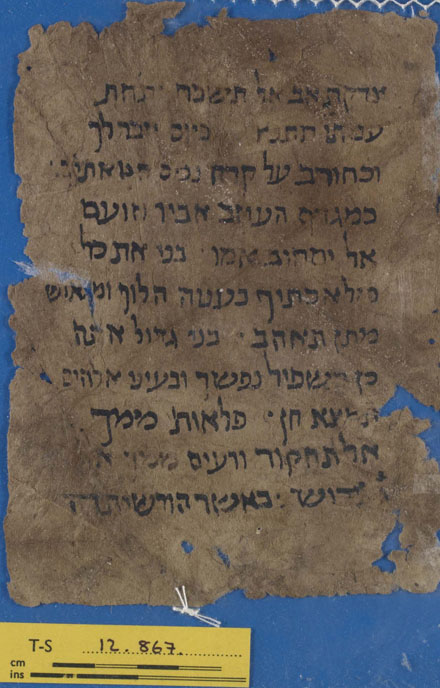 צדקת אב אל תישכח ותחת
ענותו תתנצ ביום ויזכר לך
וכחורב על קרח נמס חטאתיך:
כמגדף העוזב אביו וזועם
אל יסחוב אמו · בני את כל
מלאכתיך בענוה הלוך ומאיש
מתן תאהב · בני גדול אתה
כן תשפיל נפשך ובעיני אלהים
תמצא חן · פלאות מימך
אל תחקור ורעים ממך
תדרוש · באשר הורשיתה
T-S 12.867.
cm
ins